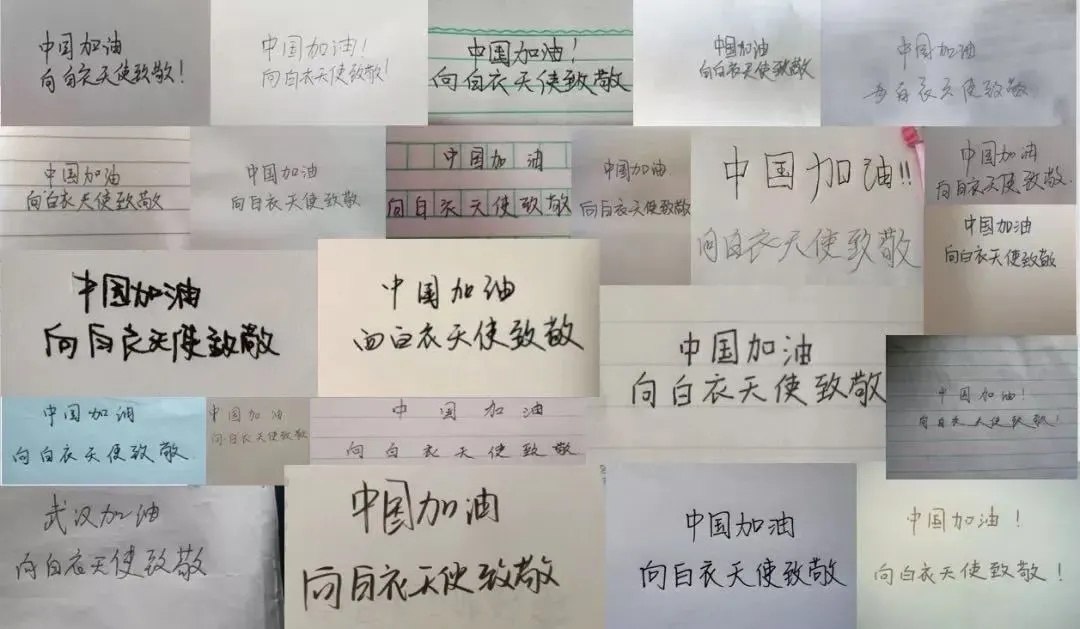 中国加油
向白衣天使致敬!
中国加油!
向白衣天使致敬!
中国加油!
向白衣天使致敬
中国加油
向白衣天使致敬
中国加油
向白衣天使致敬
中国加油
向白衣天使致敬
中国加油
向白衣天使致敬
中国加油
向白衣天使致敬
中国加油
向白衣天使致敬
中国加油!!
向白衣天使致敬
中国加油
向白衣天使致敬.
中国加油
向白衣天使致敬
中国加油
向白衣天使致敬
中国加油
向白衣天使致敬
中国加油
向白衣天使致敬
中国加油!
向白衣天使致敬!
中国加油
向白衣天使致敬
中国加油
向白衣天使致敬
中国加油
向白衣天使致敬
武汉加油
向白衣天使致敬
中国加油
向白衣天使致敬
中国加油
向白衣天使致敬
中国加油!
向白衣天使致敬!